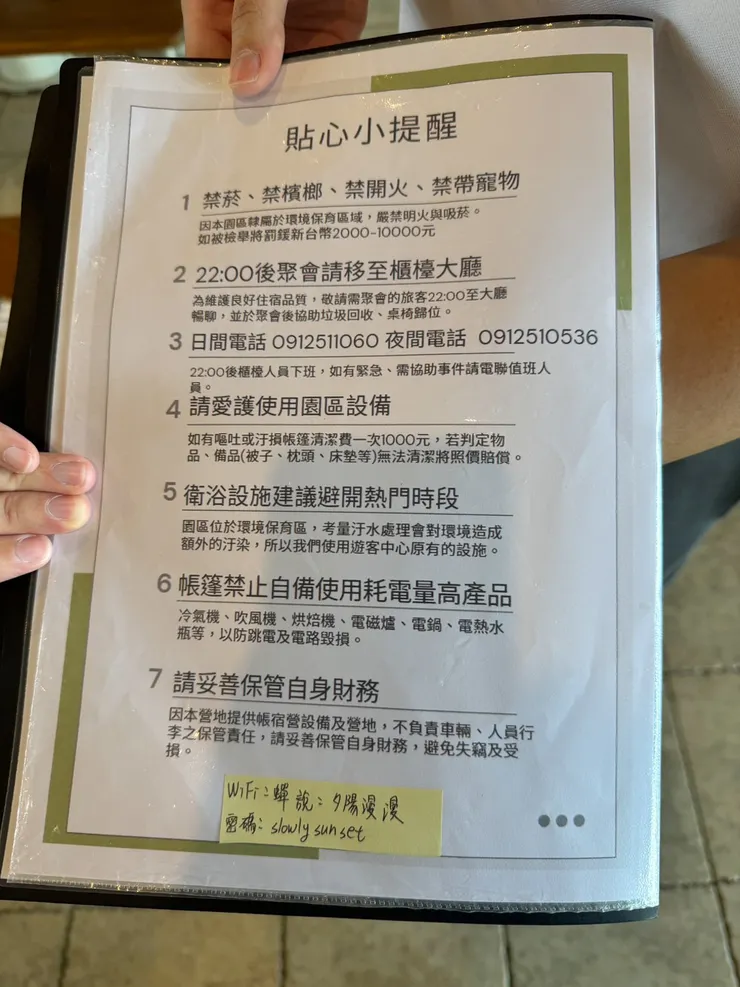 貼心小提醒
1 禁菸、禁檳榔、禁開火、禁帶寵物
因本園區隸屬於環境保育區域，嚴禁明火與吸菸。
如被檢舉將罰鍰新台幣2000~10000元
2 22:00後聚會請移至櫃檯大廳
為維護良好住宿品質，敬請需聚會的旅客22:00至大廳
暢聊，並於聚會後協助垃圾回收、桌椅歸位。
3 日間電話 0912511060 夜間電話 0912510536
22:00後櫃檯人員下班，如有緊急、需協助事件請電聯值班人
員。
4 請愛護使用園區設備
如有嘔吐或汙損帳篷清潔費一次1000元，若判定物
品、備品(被子、枕頭、床墊等)無法清潔將照價賠償。
5 衛浴設施建議避開熱門時段
園區位於環境保育區，考量汙水處理會對環境造成
額外的汙染，所以我們使用遊客中心原有的設施。
6 帳篷禁止自備使用耗電量高產品
冷氣機、吹風機、烘焙機、電磁爐、電鍋、電熱水
瓶等，以防跳電及電路毀損。
7 請妥善保管自身財務
因本營地提供帳宿營設備及營地，不負責車輛、人員行
李之保管責任，請妥善保管自身財務，避免失竊及受
損。
WiFi：蟬說：夕陽漫漫
密碼：slowlysunset